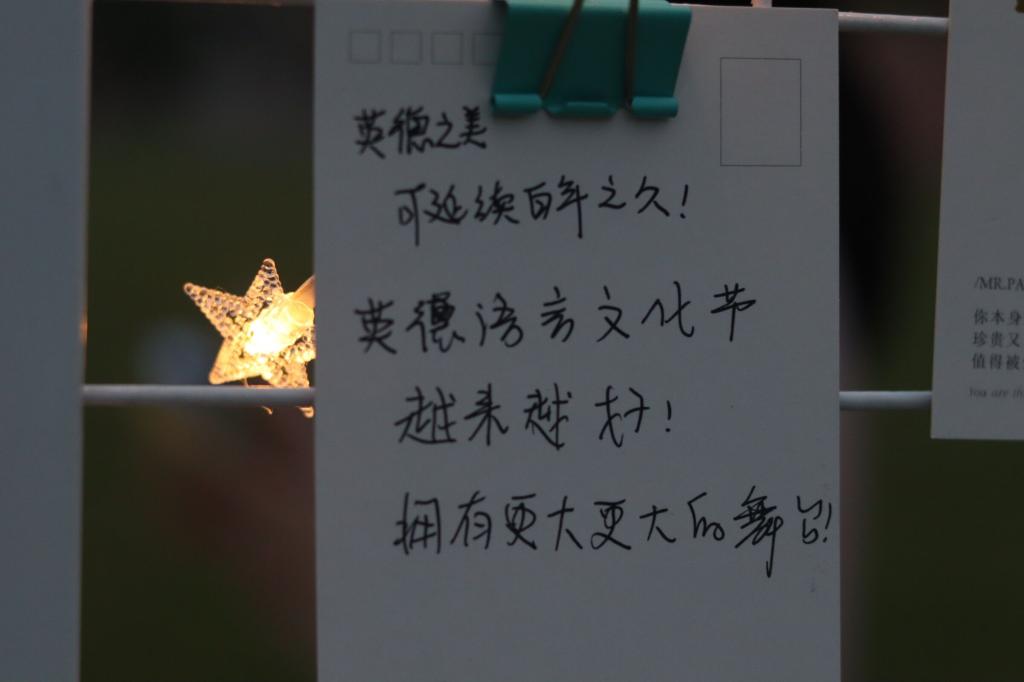 英德之美
可延续百年之久!
英德语言文化节
越来越好!
拥有更大更大的舞台!
/MR.PA
你本身
珍贵又
值得被
You are th